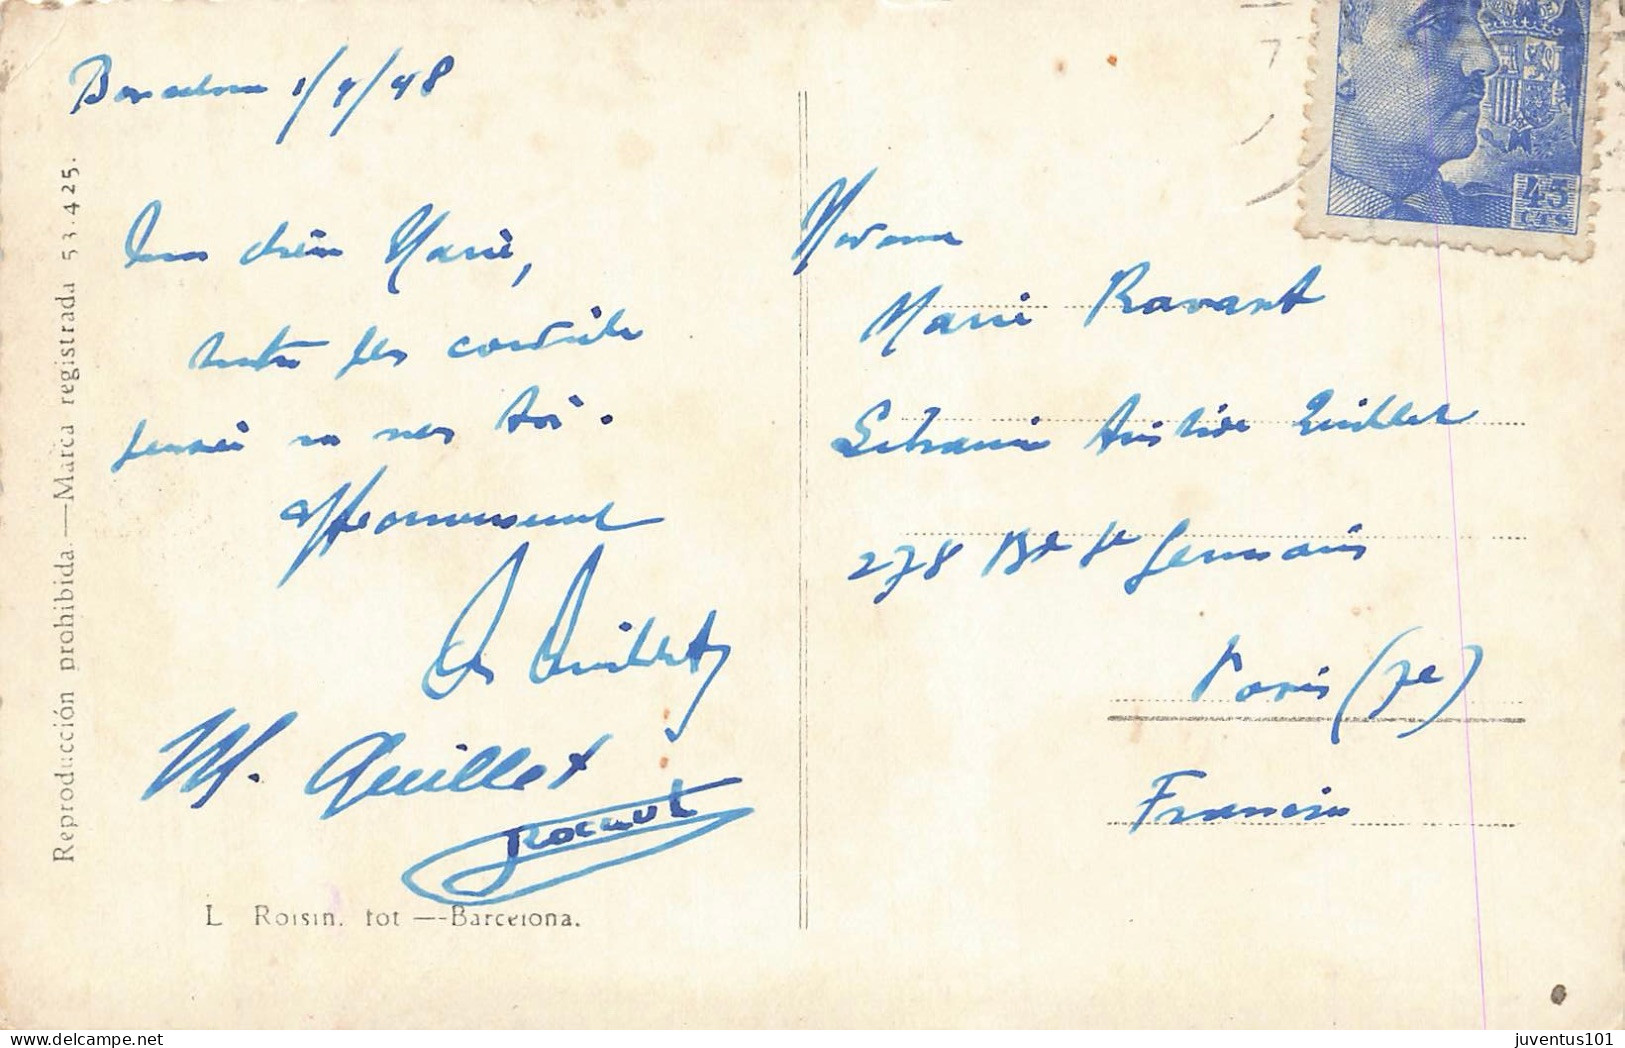 Barcelona 1/9/48
Ma chère Marie,
toutes les cordiales
pensées
Affectueusement
A. Quillet
M. Quillet
L Roisin. fot —-Barcelona.
Reproducción prohibida.—Marca registrada 53.425.
45
CTS
Madame
Marie Ravant
Librairie Aristide Quillet
278 Bd St Germain
Paris (7e)
Francia
www.delcampe.net
juventus101